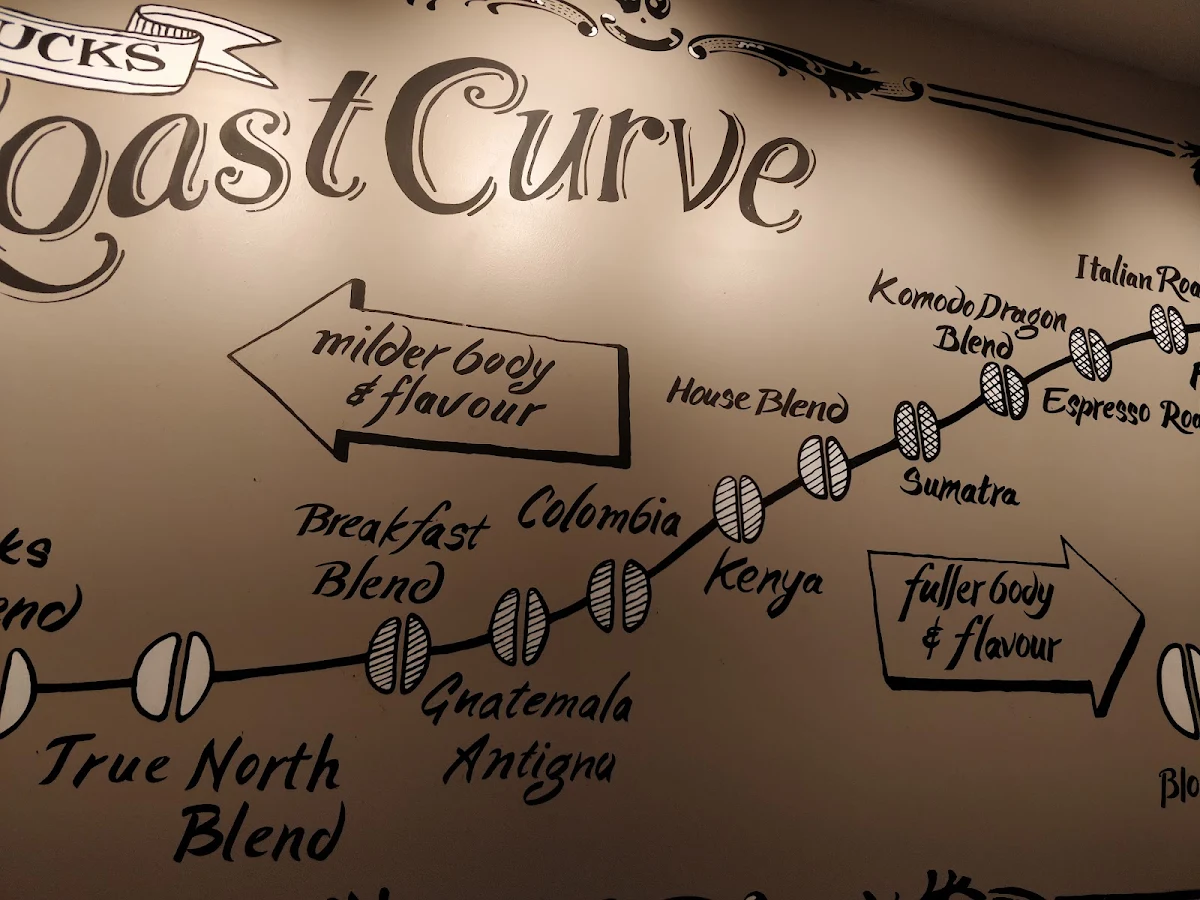 UCKS
oast Curve
milder body
& flavour
Italian Roa
Komodo Dragon
Blend
Espresso Roa
House Blend
Sumatra
Breakfast
Blend
Colombia
Kenya
fuller body
& flavour
ks
end
Gnatemala
Antigna
True North
Blend
Blo